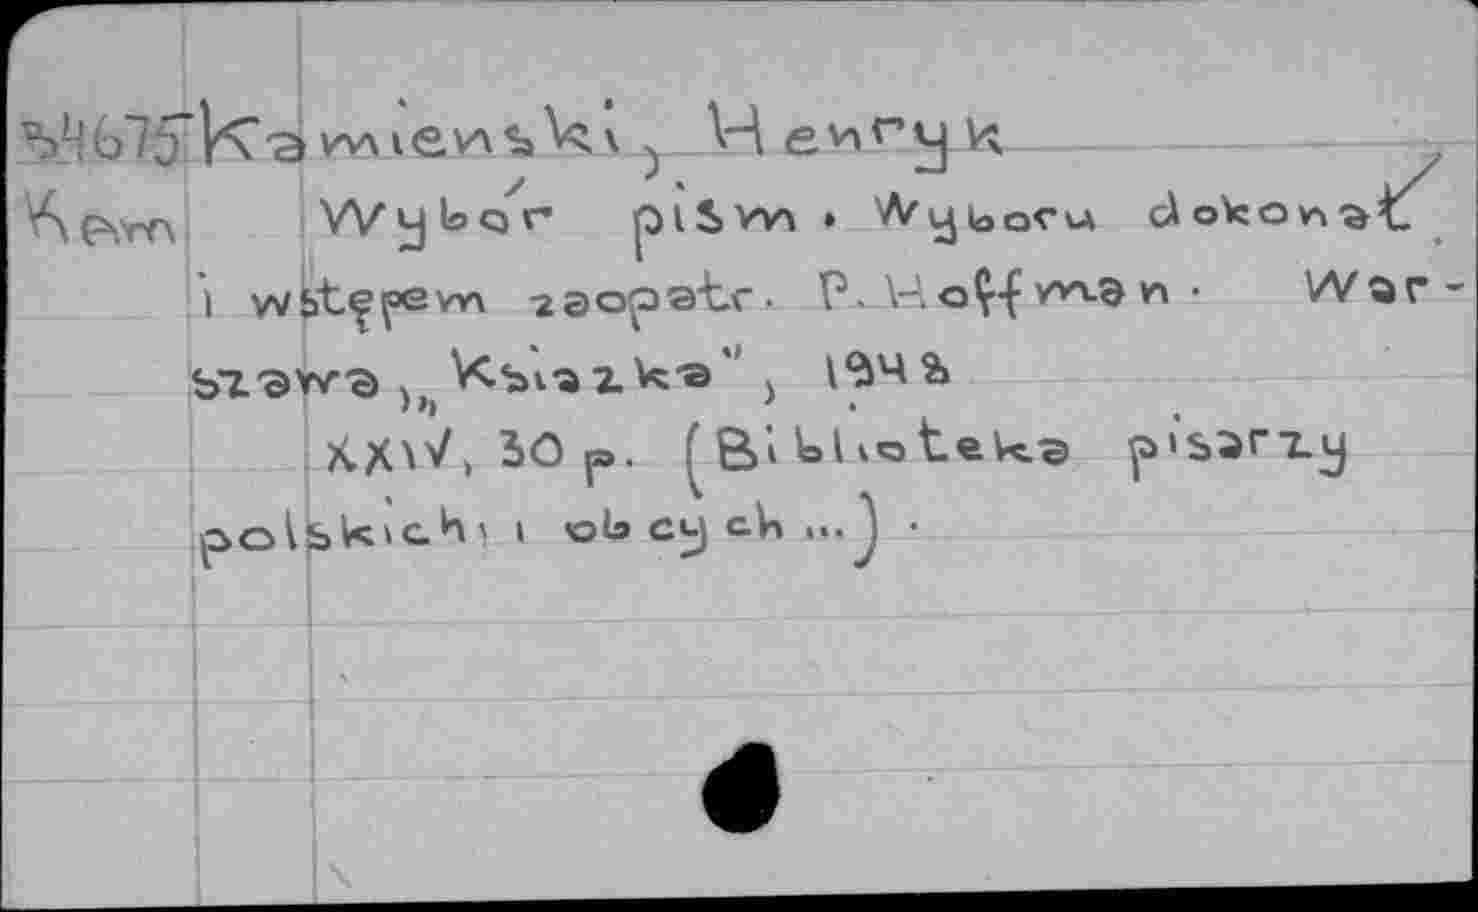 34675 Kamienski, Henryk
Kam Wybór pism. Wyboru dokonał
i wstępem zaopatr. P. Hoffman. War-
szawa, „Książka", 1948
XXIV, 30 p. (Biblioteka pisarzy
polskichi i obcych ...).